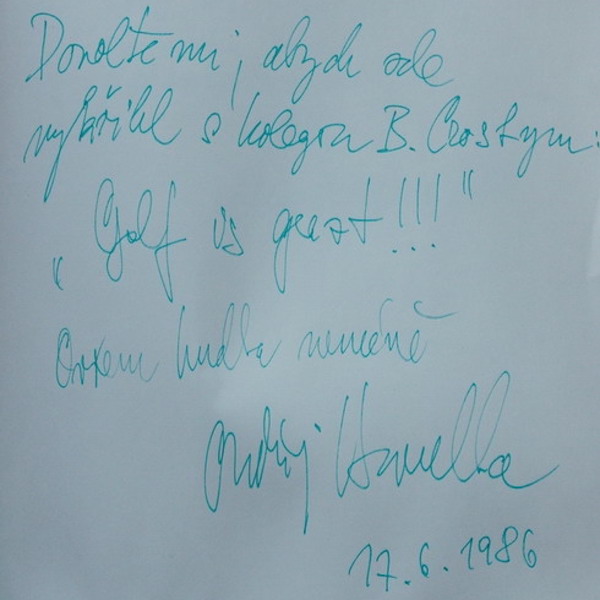 Dovolte mi, abych zde
vykřikl s kolegou B. Crosbym:
„Golf is great!!!"
Ovšem hudba neméně
Ondřej Havelka
17.6.1986